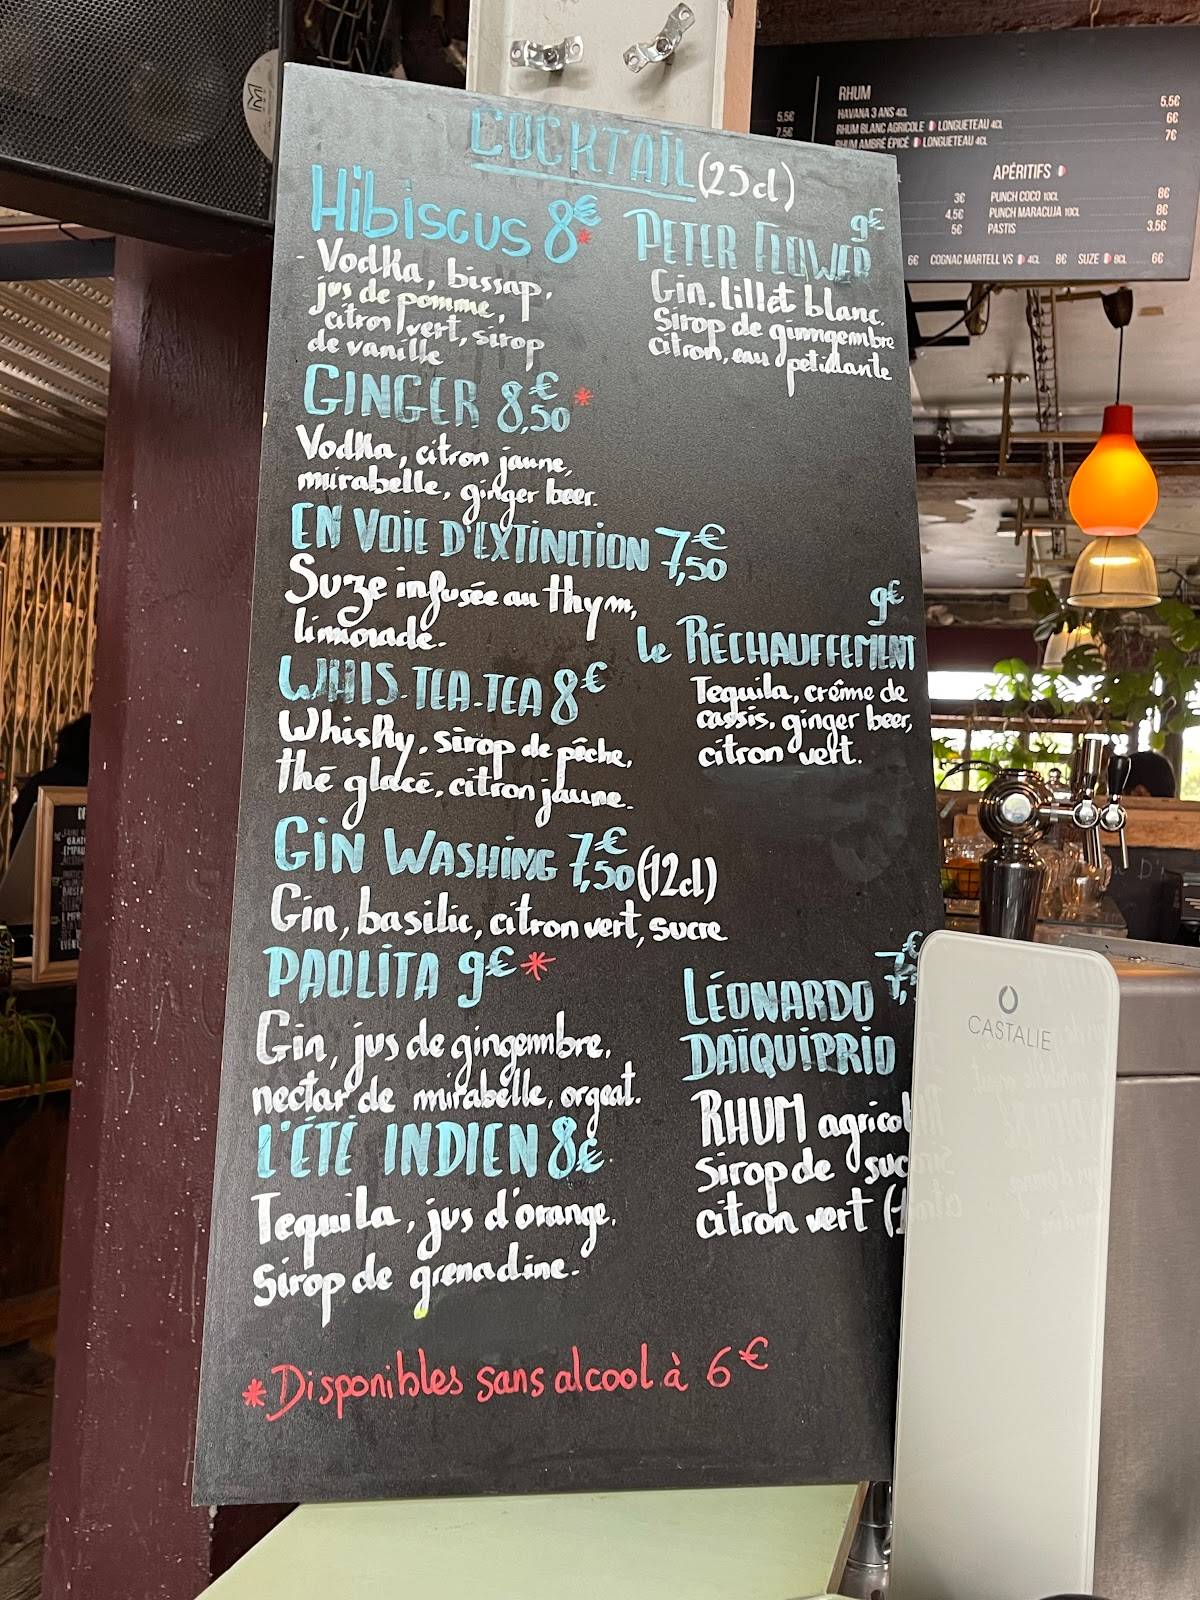 COCKTAIL (25cl)
Hibiscus 8€*
Vodka, bissap,
jus de pomme,
citron vert, sirop
de vanille
GINGER 8,50€*
Vodka, citron jaune,
mirabelle, ginger beer.
EN VOIE D'EXTINCTION 7,50€
Suze infusée au thym,
limonade.
WHIS-TEA-TEA 8€
Whisky, sirop de pêche,
thé glacé, citron jaune.
GIN WASHING 7,50€ (12cl)
Gin, basilic, citron vert, sucre
PAOLITA 9€*
Gin, jus de gingembre,
nectar de mirabelle, orgeat.
L'ÉTÉ INDIEN 8€
Tequila, jus d'orange,
Sirop de grenadine.
9€
PETER FLOWER
Gin, Lillet blanc,
Sirop de gimgembre
citron, eau petillante
9€
Le RÉCHAUFFEMENT
Tequila, crème de
cassis, ginger beer,
citron vert.
LÉONARDO 7,
DAÏQUIPRIO
RHUM agricol
Sirop de suc
citron vert (1
*Disponibles sans alcool à 6€
RHUM
5,5€ HAVANA 3 ANS 4CL 5,5€
7,5€ RHUM BLANC AGRICOLE LONGUETEAU 4CL 6€
RHUM AMBRÉ ÉPICÉ LONGUETEAU 4CL 7€
APÉRITIFS
3€ PUNCH COCO 10CL 8€
4,5€ PUNCH MARACUJA 10CL 8€
5€ PASTIS 3,5€
6€ COGNAC MARTELL VS 4CL 8€ SUZE 8CL 6€
CASTALIE